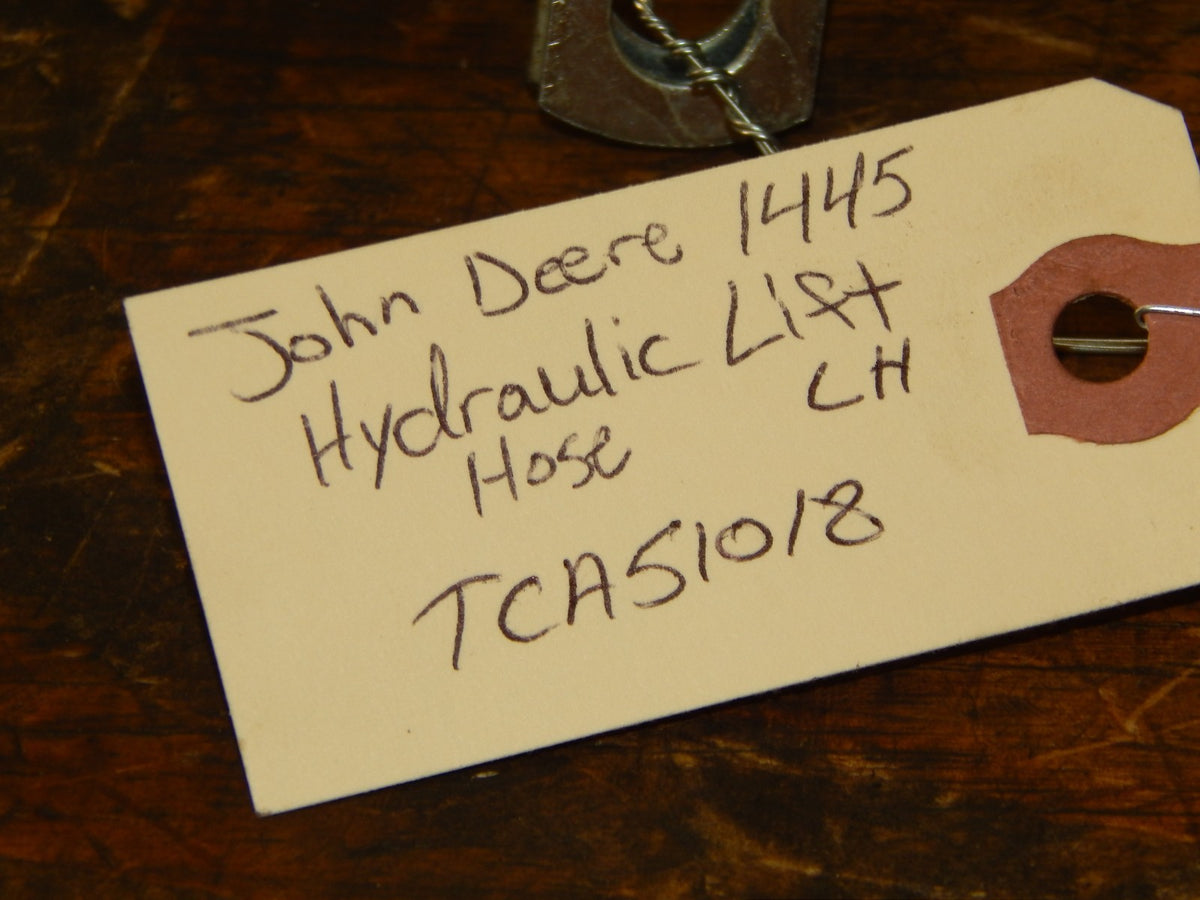 John Deere 1445
Hydraulic Lift
Hose LH
TCA51018